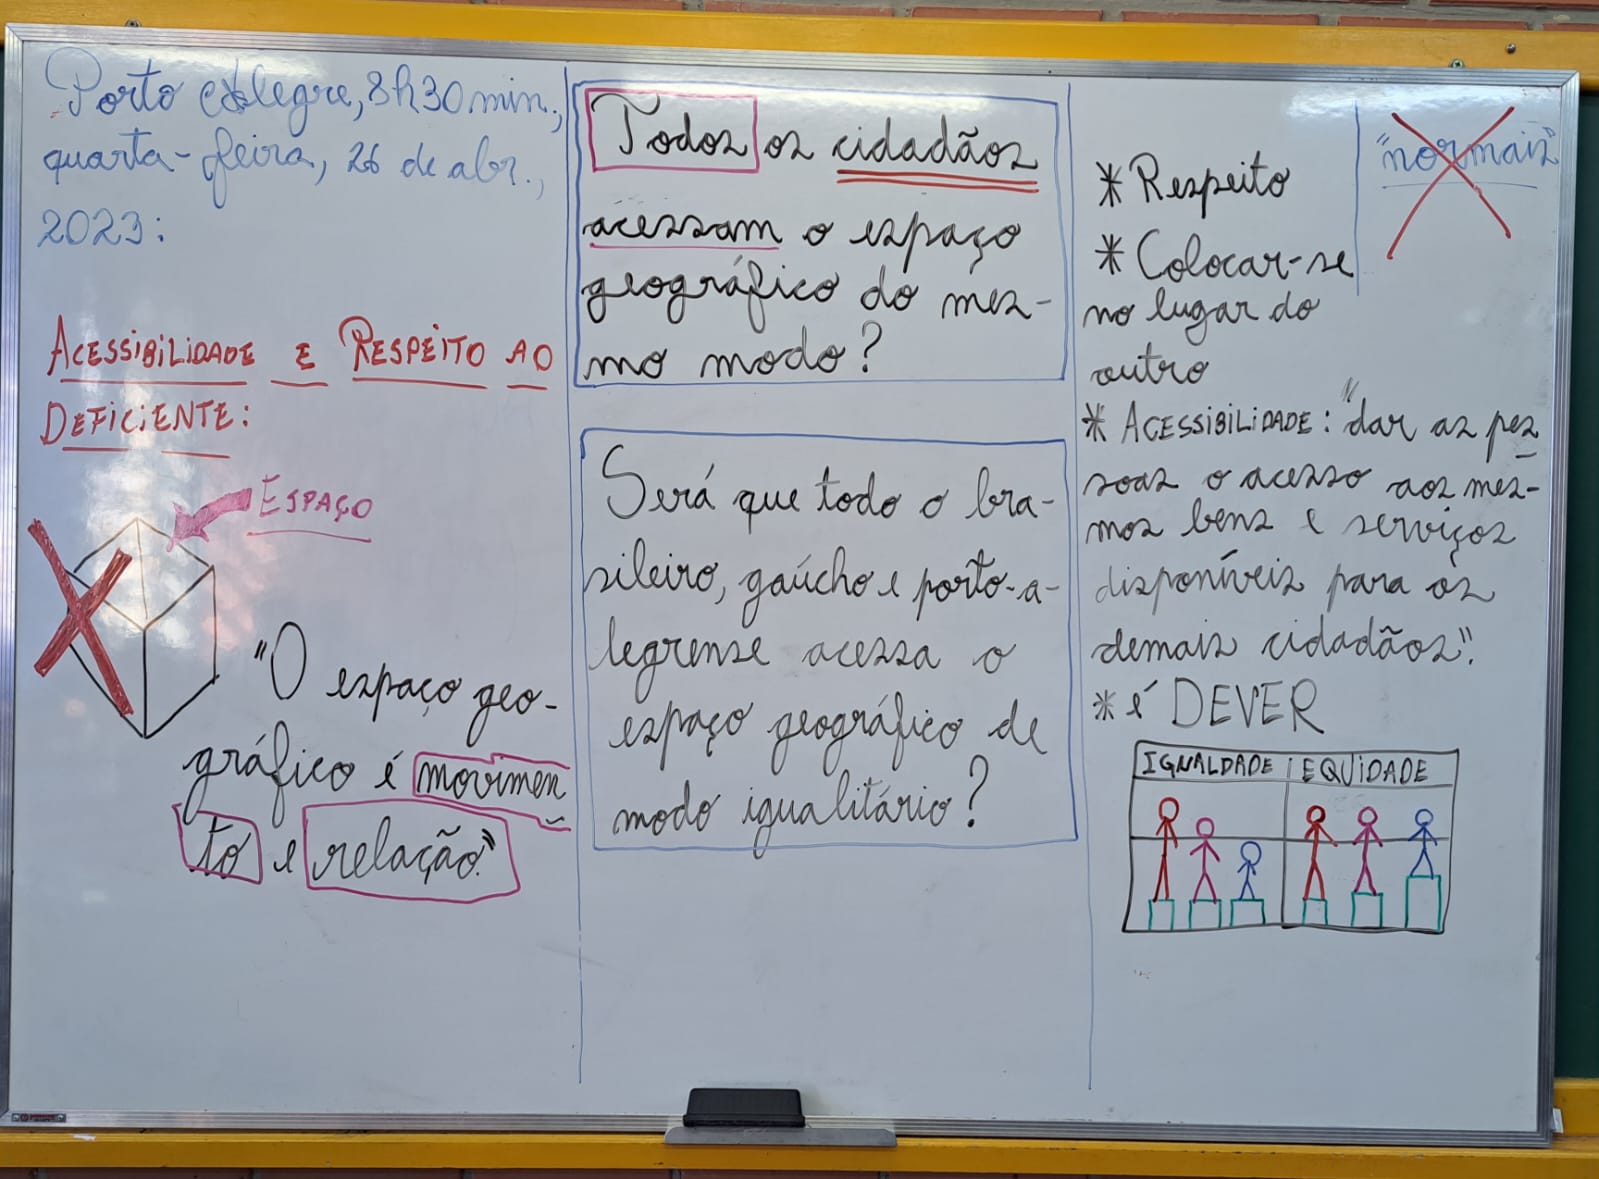 Porto Alegre, 8h30min.,
quarta-feira, 26 de abr.,
2023:
ACESSIBILIDADE E RESPEITO AO
DEFICIENTE:
ESPAÇO
"O espaço geo-
gráfico é movimen
to e relação."
Todos os cidadãos
acessam o espaço
geográfico do mes-
mo modo?
Será que todo o bra-
sileiro, gaúcho e porto-a-
legrense acessa o
espaço geográfico de
modo igualitário?
"normais"
* Respeito
* Colocar-se
no lugar do
outro
* ACESSIBILIDADE: "dar as pes
soas o acesso aos mes-
mos bens e serviços
disponíveis para os
demais cidadãos".
* é DEVER
IGUALDADE EQUIDADE